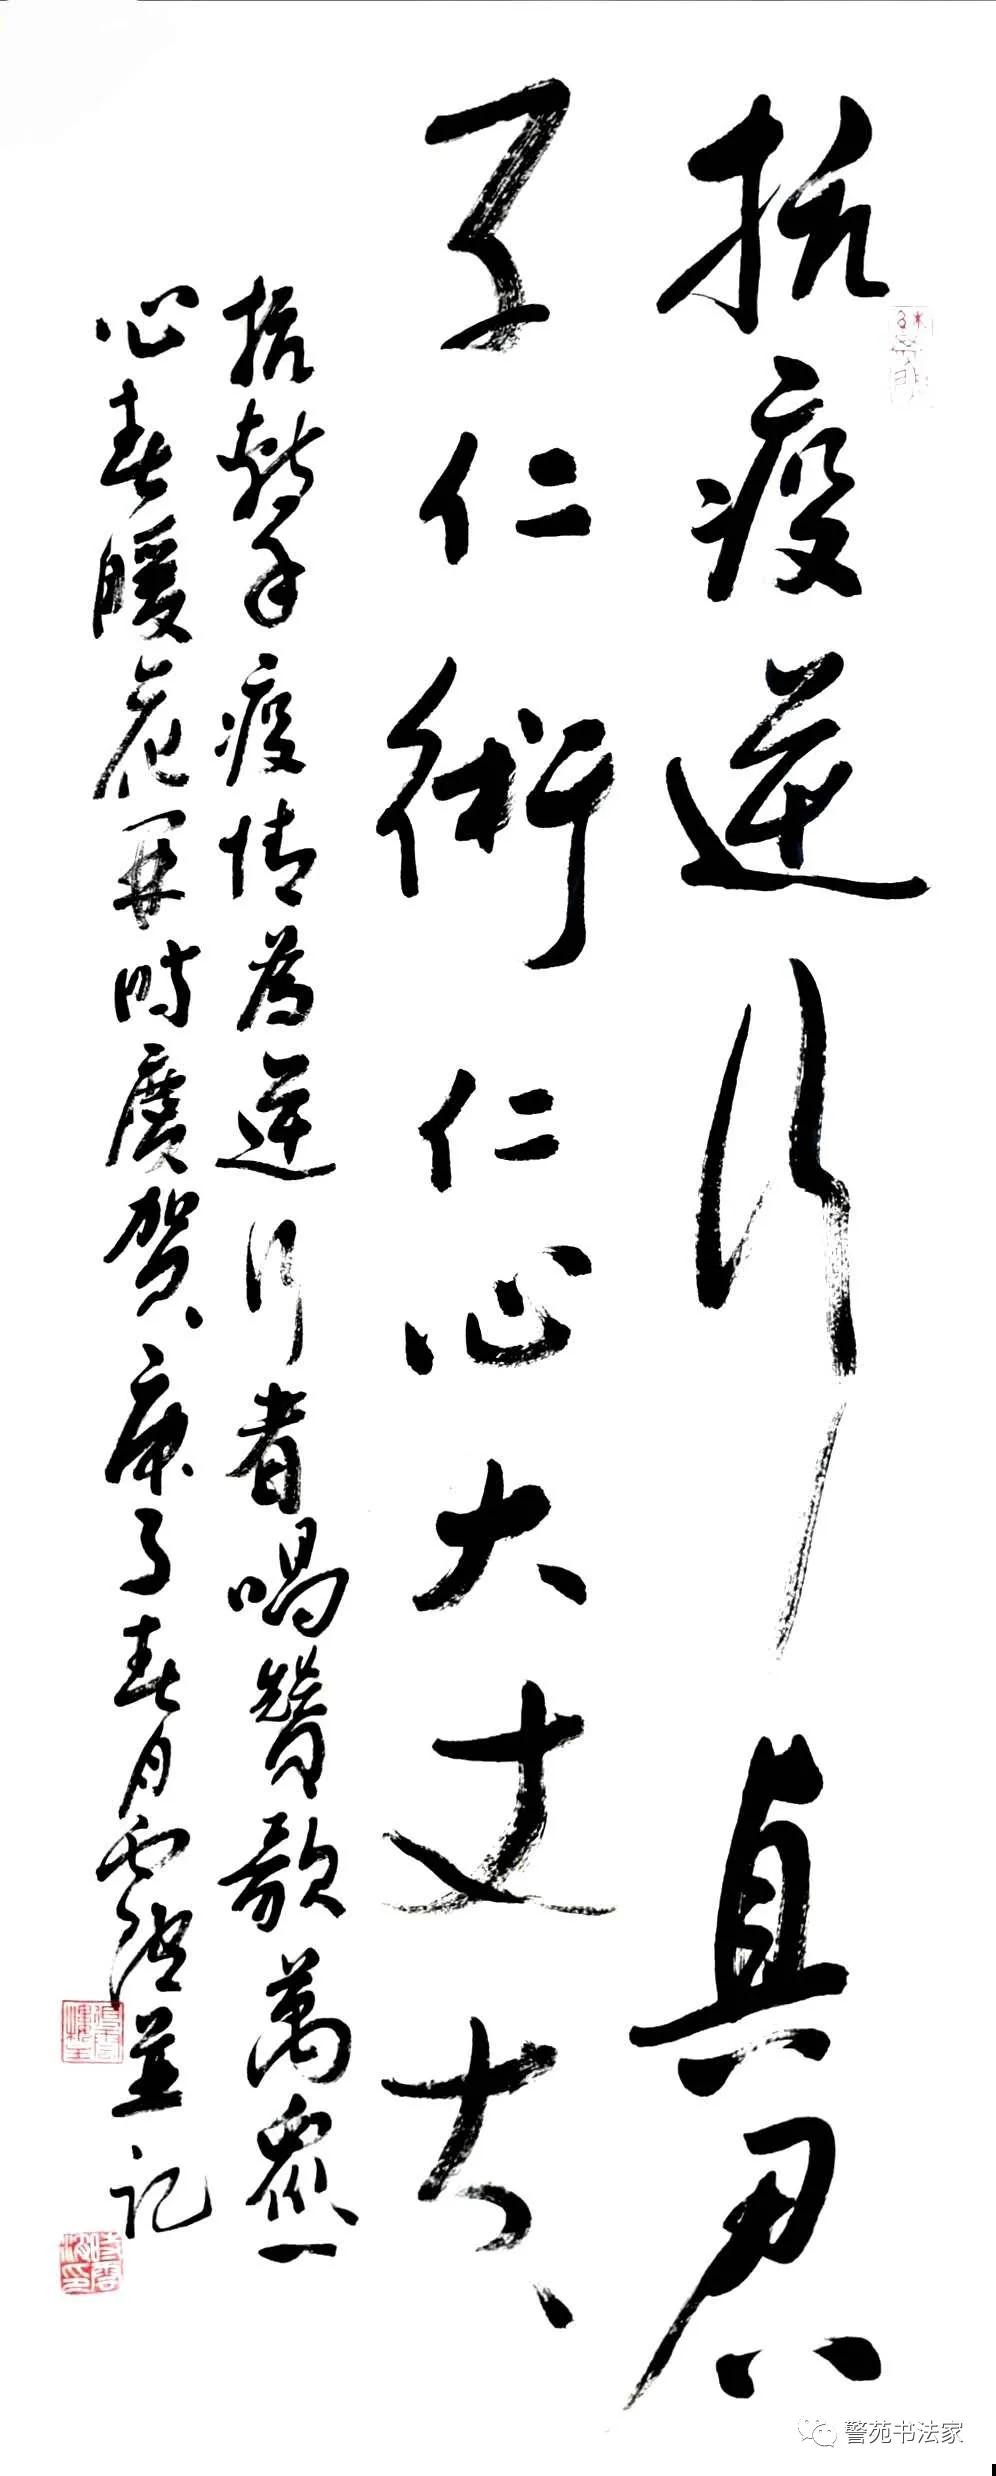 抗疫逆行真君
子仁術仁心大丈夫
抗擊疫情為逆行者唱贊歌萬衆一
心春暖花開時慶賀庚子春月雲海並記
警苑书法家